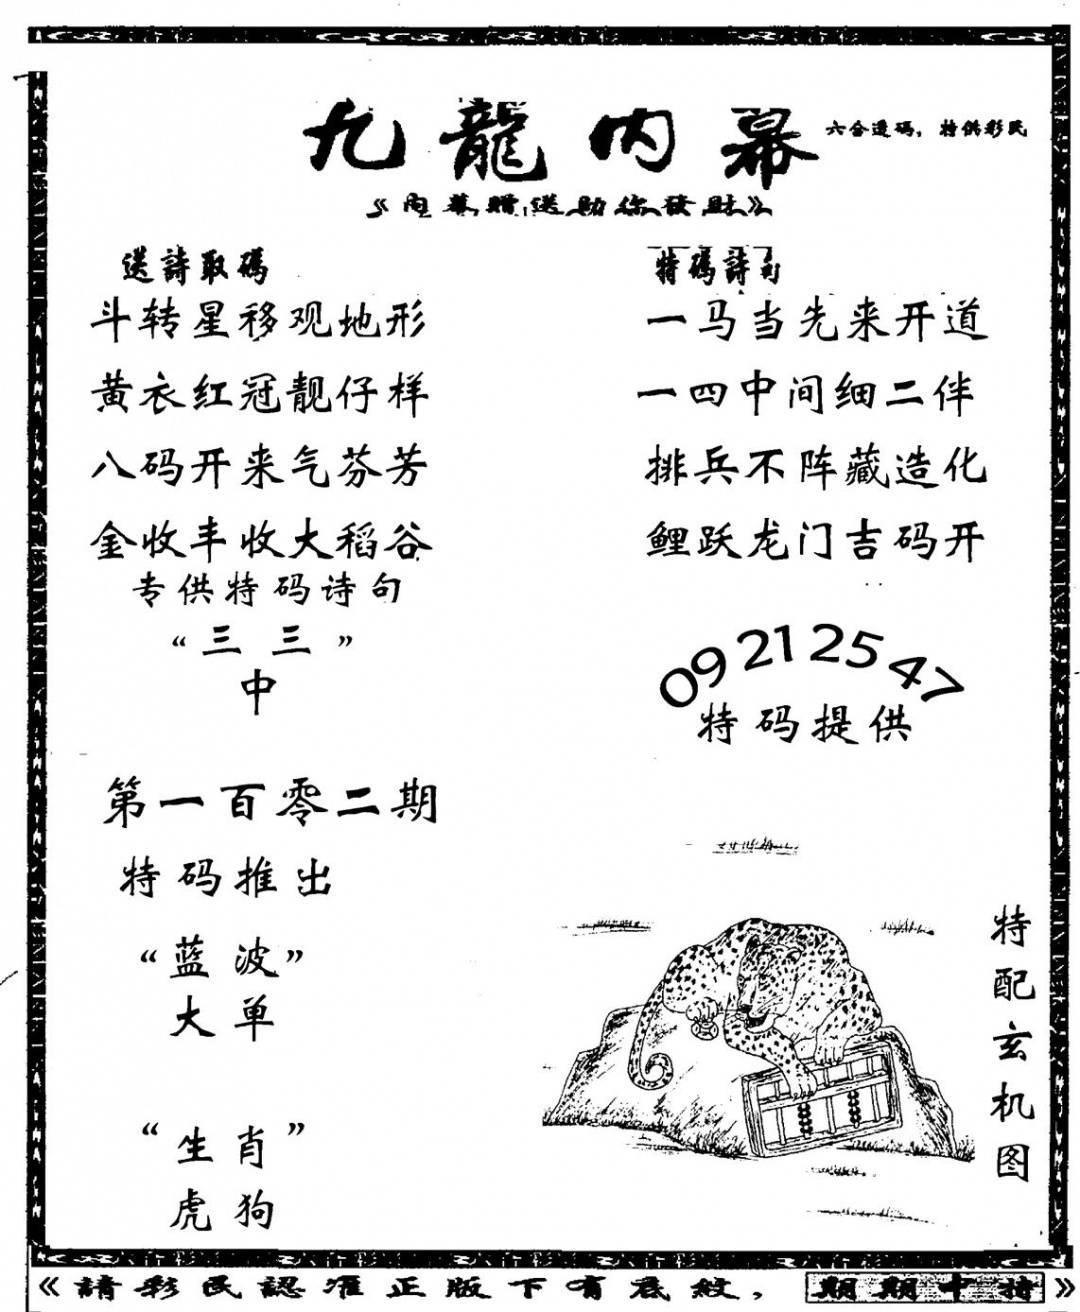 九龍内幕
六合透码，特供彩民
《内幕赠送助你發财》
送詩取碼
斗转星移观地形
黄衣红冠靓仔样
八码开来气芬芳
金收丰收大稻谷
专供特码诗句
“三三”
中
特碼詩句
一马当先来开道
一四中间细二伴
排兵不阵藏造化
鲤跃龙门吉码开
09 21 25 47
特码提供
第一百零二期
特码推出
“蓝波”
大单
“生肖”
虎狗
特配玄机图
《請彩民認准正版下有底紋，期期中特》